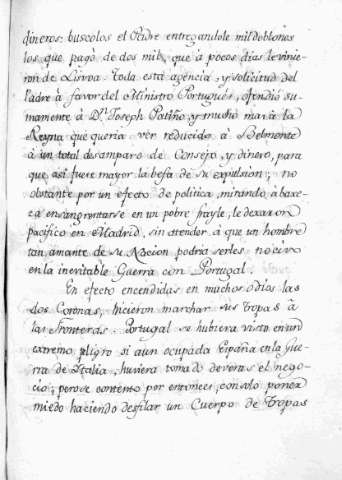 dineros: buscolos el Padre entregandole mil doblones
los que pagò de dos mil, que à pocos dias le vinie-
ron de Lisboa. toda esta agencia, y solicitud del
Padre à favor del Ministro Portugues, ofendiò su-
mamente à Dn. Joseph Patiño, y mucho mas à la
Reyna que queria ver reducido à Belmonte
à un total desamparo de Consejo, y dinero, para
que asi fuere mayor la befa de su expulsion; no
obstante por un efecto de politica, mirando à baxe-
za ensangrentarse en un pobre frayle, le dexaron
pacifico en Madrid, sin atender à que un hombre
tan amante de su Nacion podria serles nocivo
en la inevitable Guerra con Portugal.
En efecto encendidas en muchos odios las
dos Coronas, hicieron marchar sus tropas à
las Fronteras. Portugal se hubiera visto en un
extremo pligro si aun ocupada España en la Gue-
rra de Italia, huviera tomado de veras el nego-
cio; pero se contentò por entonces, con solo poner
miedo haciendo desfilar un Cuerpo de tropas